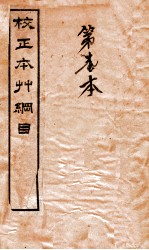 校正本艸綱目
第本